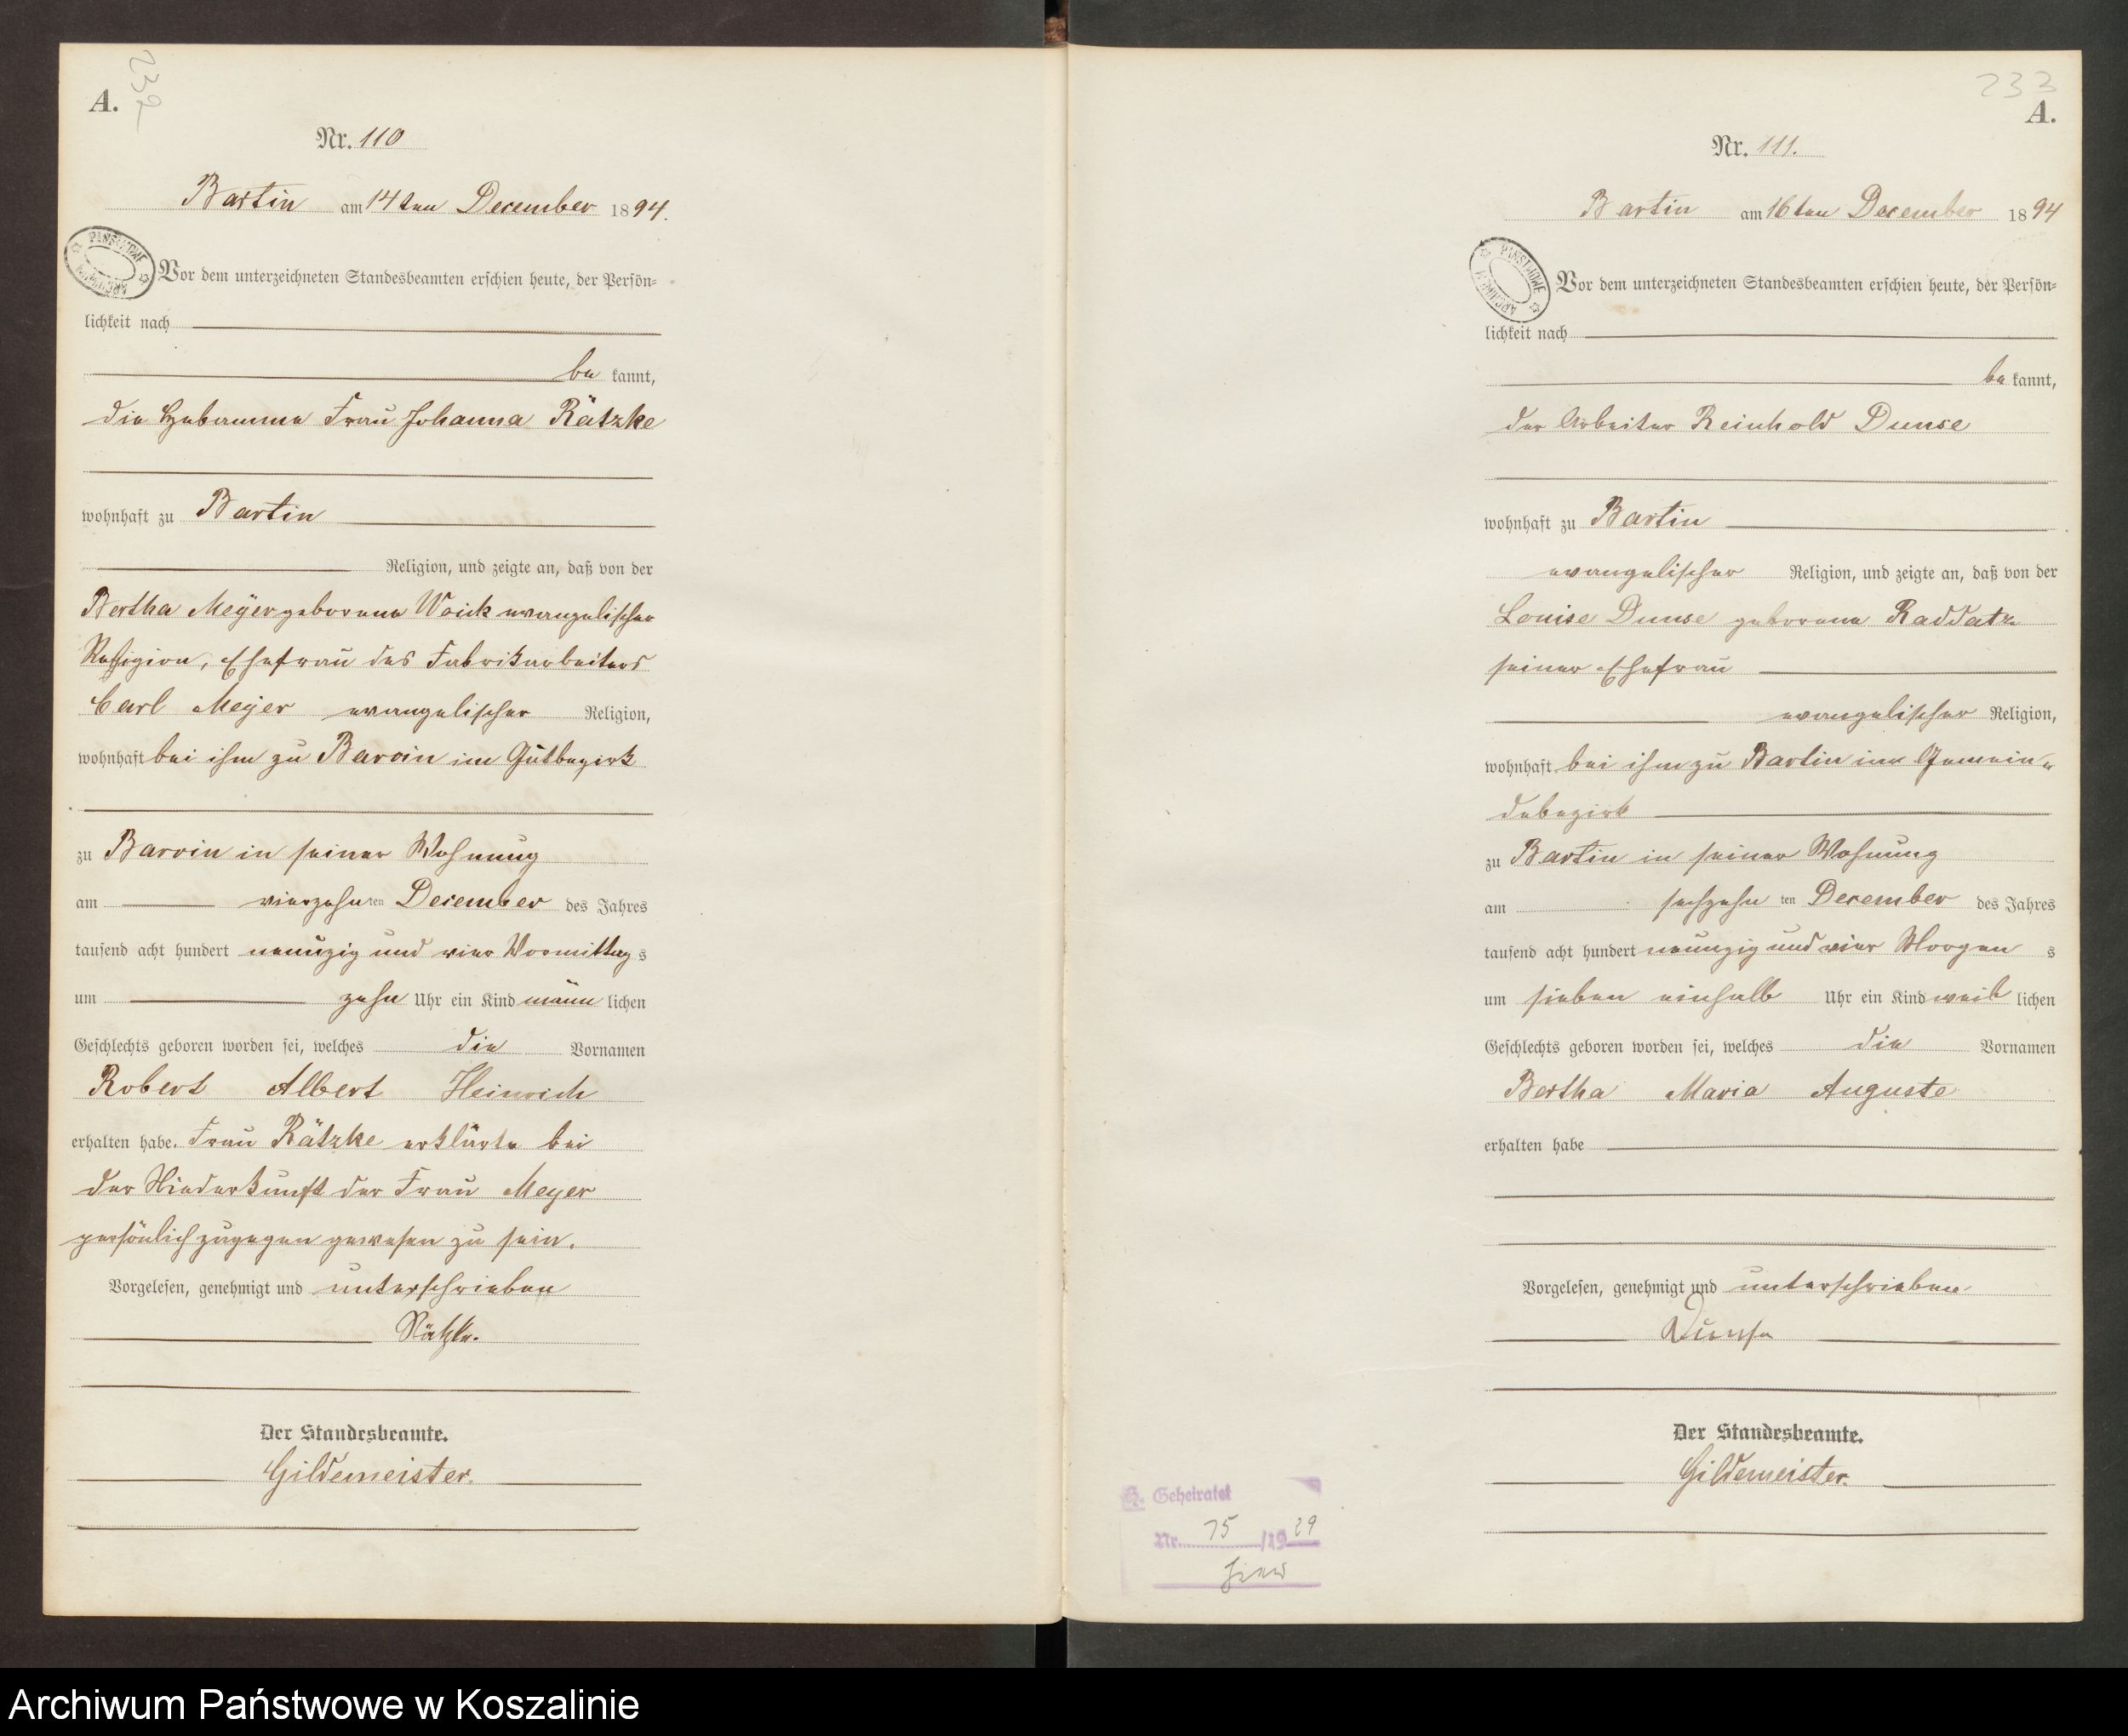 232
A.
Nr. 110
Bartin am 14ten December 1894.
Vor dem unterzeichneten Standesbeamten erschien heute, der Persön-
lichkeit nach
be kannt,
die Hebamme Frau Johanna Rätzke
wohnhaft zu Bartin
Religion, und zeigte an, daß von der
Bertha Meyer geborene Woick evangelischer
Religion, Ehefrau des Fabrikarbeiters
Carl Meyer evangelischer Religion,
wohnhaft bei ihm zu Barvin im Gutbezirk
zu Barvin in seiner Wohnung
am vierzehn ten December des Jahres
tausend acht hundert neunzig und vier Vormittag s
um zehn Uhr ein Kind männ lichen
Geschlechts geboren worden sei, welches die Vornamen
Robert Albert Heinrich
erhalten habe. Frau Rätzke erklärte bei
der Niederkunft der Frau Meyer
persönlich zugegen gewesen zu sein.
Vorgelesen, genehmigt und unterschrieben
Rätzke.
Der Standesbeamte.
Gildemeister.
233
A.
Nr. 111.
Bartin am 16ten December 1894
Vor dem unterzeichneten Standesbeamten erschien heute, der Persön-
lichkeit nach
be kannt,
der Arbeiter Reinhold Dunse
wohnhaft zu Bartin
evangelischer Religion, und zeigte an, daß von der
Louise Dunse geborene Raddatz
seiner Ehefrau
evangelischer Religion,
wohnhaft bei ihm zu Bartin im Gemein-
debezirk
zu Bartin in seiner Wohnung
am sechzehn ten December des Jahres
tausend acht hundert neunzig und vier Morgen s
um sieben einhalb Uhr ein Kind weib lichen
Geschlechts geboren worden sei, welches die Vornamen
Bertha Maria Auguste
erhalten habe
Vorgelesen, genehmigt und unterschrieben
Dunse
Der Standesbeamte.
Gildemeister.
Geheiratet
Nr. 15 /1929
PAŃSTWOWE ARCHIWUM
PAŃSTWOWE ARCHIWUM
Archiwum Państwowe w Koszalinie